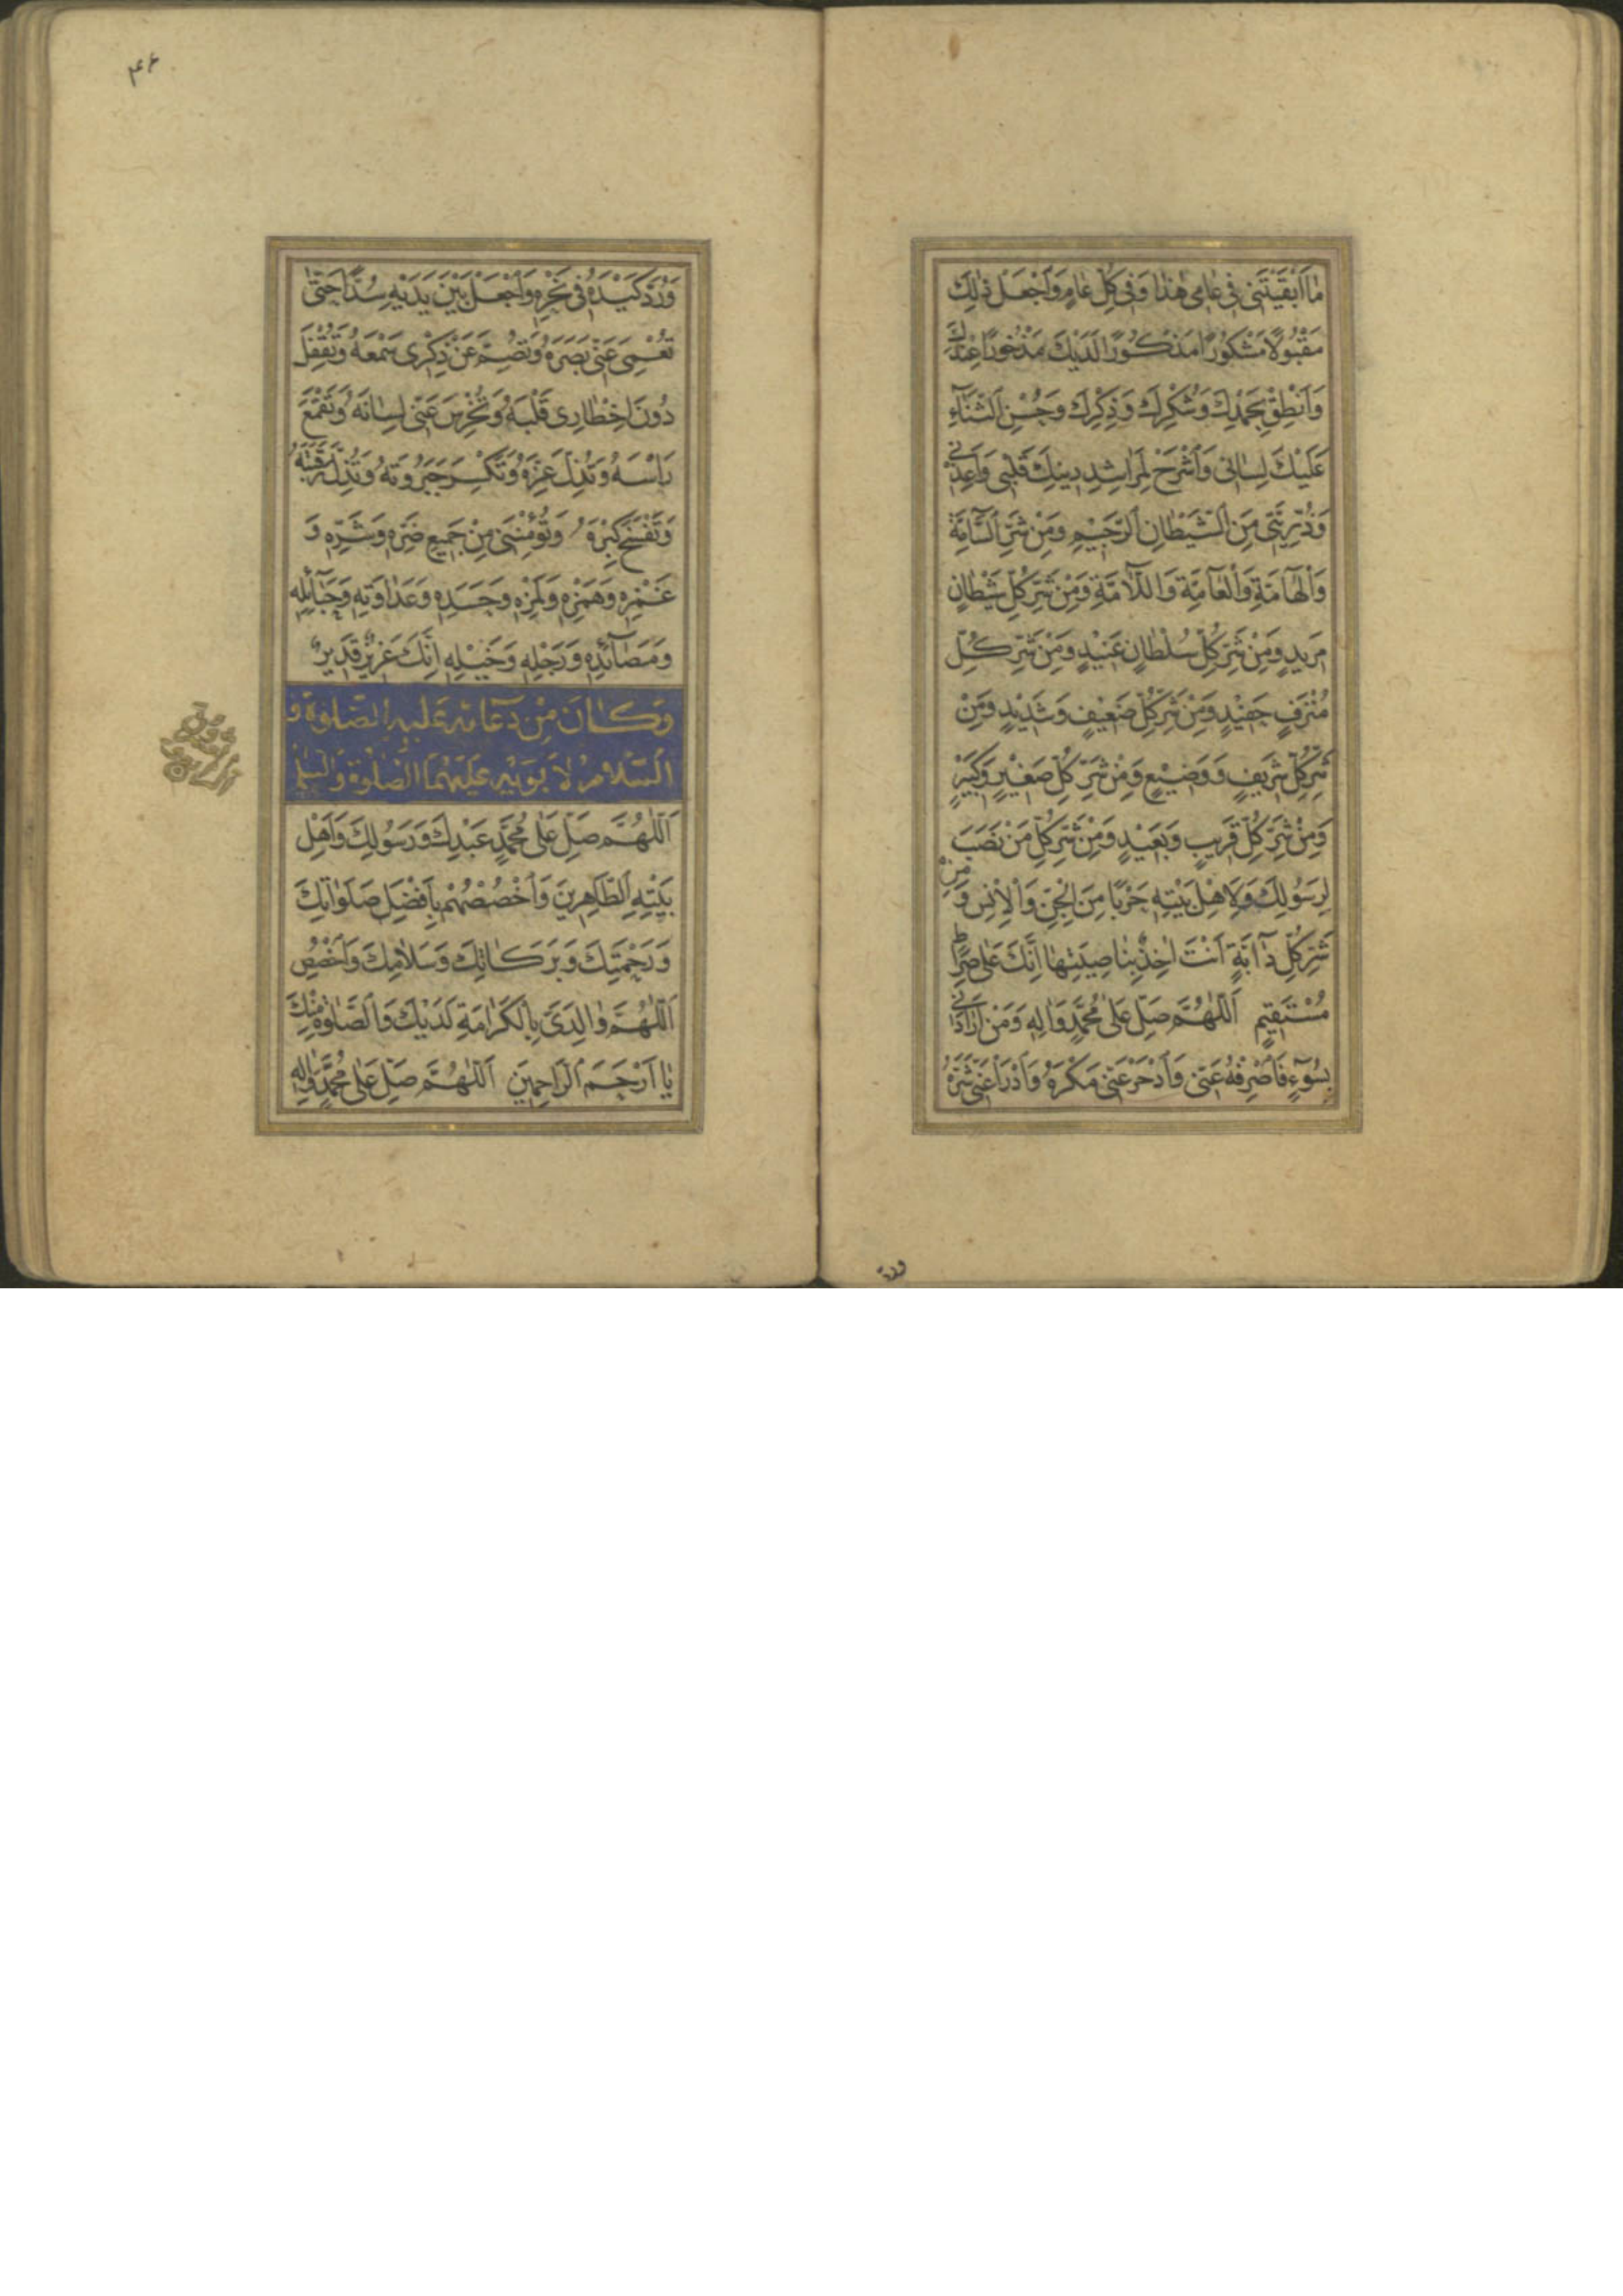 مَا اَبْقَيْتَنِي فِي عَامِي هٰذَا وَفِي كُلِّ عَامٍ وَاجْعَلْ ذٰلِكَ
مَقْبُولًا مَشْكُورًا مَذْكُورًا لَدَيْكَ مَذْخُورًا عِنْدَكَ
وَاَنْطِقْ بِحَمْدِكَ وَشُكْرِكَ وَذِكْرِكَ وَحُسْنِ الثَّنَآءِ
عَلَيْكَ لِسَانِي وَاشْرَحْ لِمَرَاشِدِ دِينِكَ قَلْبِي وَاَعِذْنِي
وَذُرِّيَّتِي مِنَ الشَّيْطَانِ الرَّجِيمِ وَمِنْ شَرِّ السَّآمَّةِ
وَالْهَآمَّةِ وَالْعَآمَّةِ وَاللَّآمَّةِ وَمِنْ شَرِّ كُلِّ شَيْطَانٍ
مَرِيدٍ وَمِنْ شَرِّ كُلِّ سُلْطَانٍ عَنِيدٍ وَمِنْ شَرِّ كُلِّ
مُتْرَفٍ حَفِيدٍ وَمِنْ شَرِّ كُلِّ ضَعِيفٍ وَشَدِيدٍ وَمِنْ
شَرِّ كُلِّ شَرِيفٍ وَوَضِيعٍ وَمِنْ شَرِّ كُلِّ صَغِيرٍ وَكَبِيرٍ
وَمِنْ شَرِّ كُلِّ قَرِيبٍ وَبَعِيدٍ وَمِنْ شَرِّ كُلِّ مَنْ نَصَبَ
لِرَسُولِكَ وَلِاَهْلِ بَيْتِهِ حَرْبًا مِنَ الْجِنِّ وَالْاِنْسِ وَ مِنْ
شَرِّ كُلِّ دَآبَّةٍ اَنْتَ اٰخِذٌ بِنَاصِيَتِهَا اِنَّكَ عَلٰى صِرَاطٍ
مُسْتَقِيمٍ اَللّٰهُمَّ صَلِّ عَلٰى مُحَمَّدٍ وَاٰلِهِ وَمَنْ اَرَادَنِي
بِسُوٓءٍ فَاصْرِفْهُ عَنِّي وَادْحَرْ عَنِّي مَكْرَهُ وَادْرَأْ عَنِّي شَرَّهُ
ورد
۴۶
وَرُدَّ كَيْدَهُ فِي نَحْرِهِ وَاجْعَلْ بَيْنَ يَدَيْهِ سُدًّا حَتّٰى
تُعْمِيَ عَنِّي بَصَرَهُ وَتُصِمَّ عَنْ ذِكْرِي سَمْعَهُ وَتُقْفِلَ
دُونَ اِخْطَارِي قَلْبَهُ وَتُخْرِسَ عَنِّي لِسَانَهُ وَتَقْمَعَ
رَاْسَهُ وَتُذِلَّ عِزَّهُ وَتَكْسِرَ جَبَرُوتَهُ وَتُذِلَّ رَقَبَتَهُ
وَتَفْسَخَ كِبْرَهُ وَتُؤْمِنَنِي مِنْ جَمِيعِ ضَرِّهِ وَشَرِّهِ وَ
غَمْزِهِ وَهَمْزِهِ وَلَمْزِهِ وَحَسَدِهِ وَعَدَاوَتِهِ وَحَبَآئِلِهِ
وَمَصَآئِدِهِ وَرَجْلِهِ وَخَيْلِهِ اِنَّكَ عَزِيزٌ قَدِيرٌ
وَكَانَ مِنْ دُعَائِهِ عَلَيْهِ الصَّلٰوةُ وَ
السَّلَامُ لِاَبَوَيْهِ عَلَيْهِمَا الصَّلٰوةُ وَالسَّلٰمُ
اَللّٰهُمَّ صَلِّ عَلٰى مُحَمَّدٍ عَبْدِكَ وَرَسُولِكَ وَاَهْلِ
بَيْتِهِ الطَّاهِرِينَ وَاخْصُصْهُمْ بِاَفْضَلِ صَلَوَاتِكَ
وَرَحْمَتِكَ وَبَرَكَاتِكَ وَسَلَامِكَ وَاخْصُصِ
اللّٰهُمَّ وَالِدَيَّ بِالْكَرَامَةِ لَدَيْكَ وَالصَّلٰوةِ مِنْكَ
يَا اَرْحَمَ الرَّاحِمِينَ اَللّٰهُمَّ صَلِّ عَلٰى مُحَمَّدٍ وَاٰلِهِ